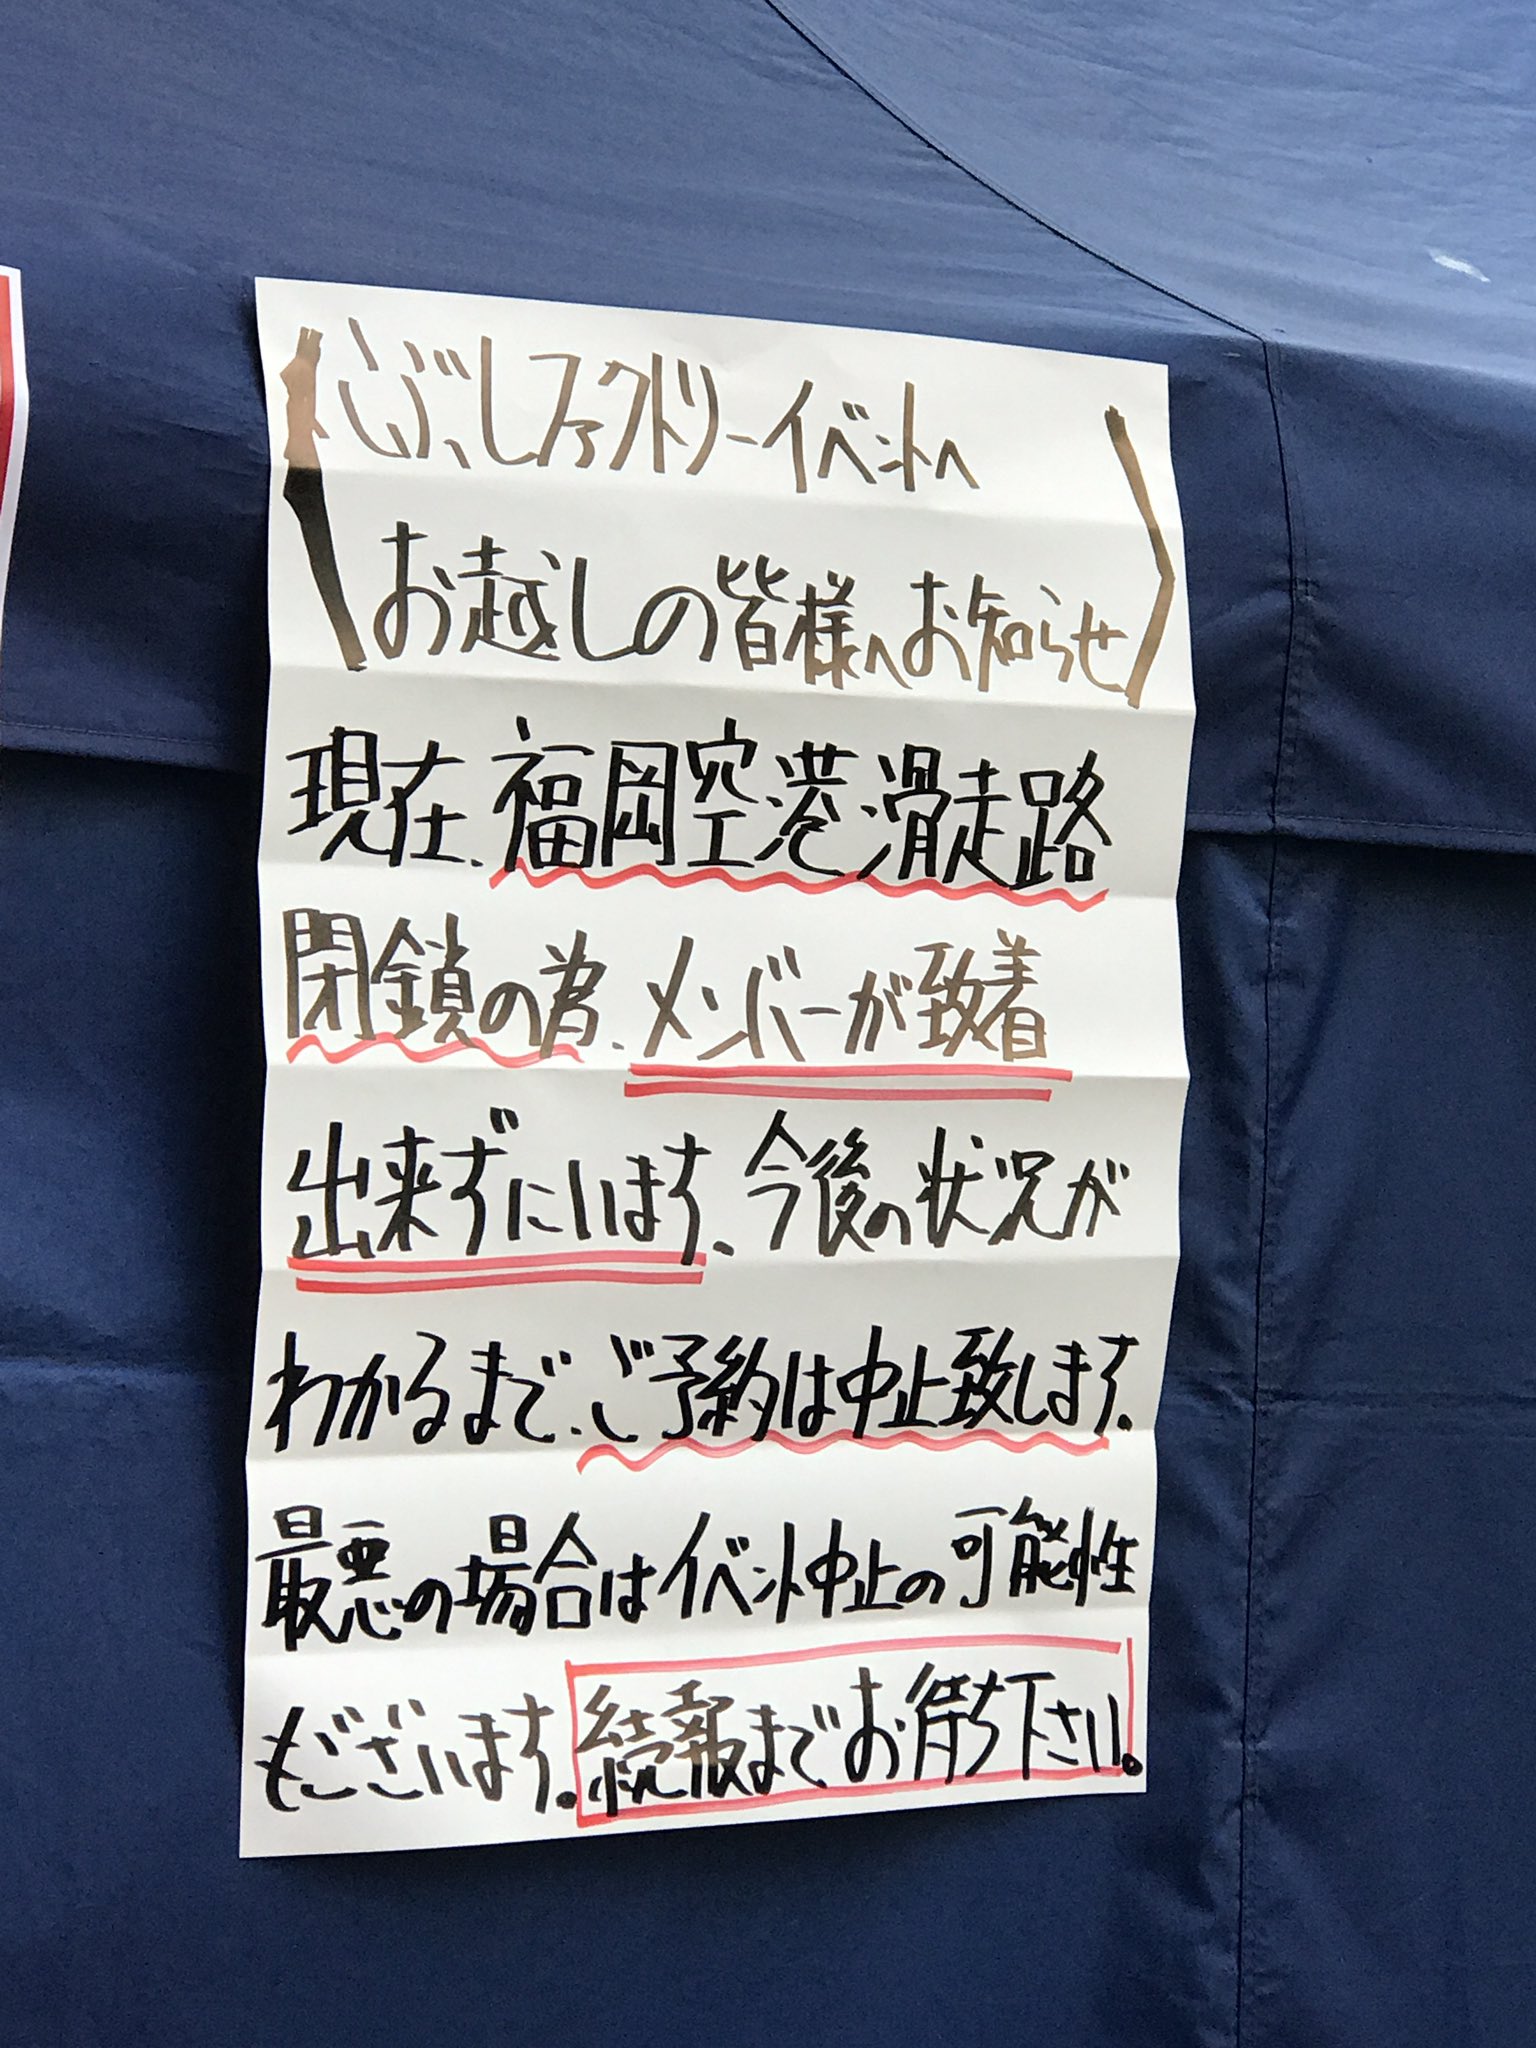 こぶしファクトリーイベントへ
お越しの皆様へお知らせ
現在、福岡空港滑走路
閉鎖の為、メンバーが致着
出来ずにいます、今後の状況が
わかるまで、ご予約は中止致します。
最悪の場合はイベント中止の可能性
もございます。続報までお待ち下さい。